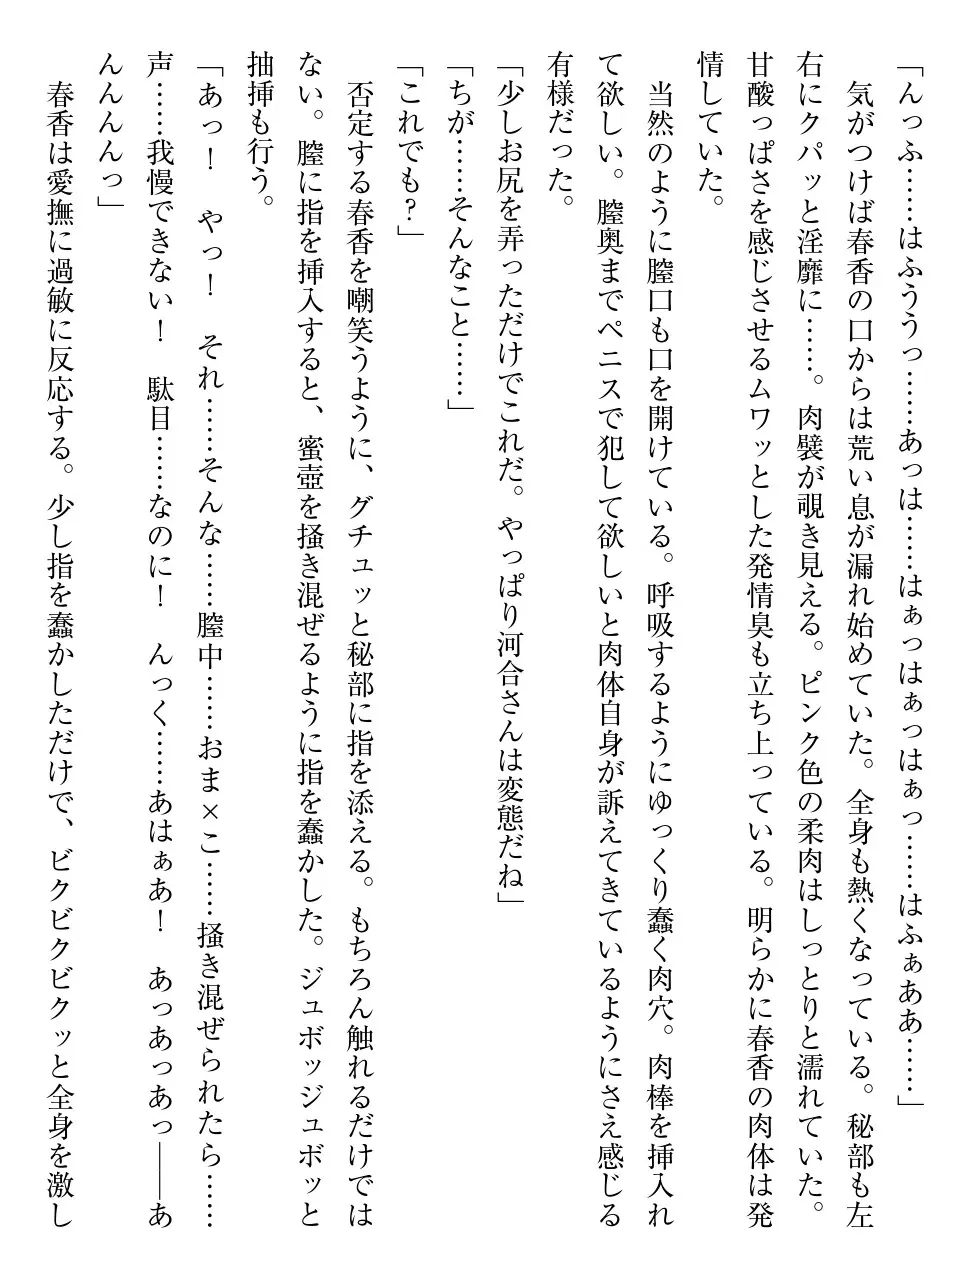 「んっふ……はふううっ……あっは……はぁっはぁっはぁっ……はふぁああ……」
　気がつけば春香の口からは荒い息が漏れ始めていた。全身も熱くなっている。秘部も左
右にクパッと淫靡に……。肉襞が覗き見える。ピンク色の柔肉はしっとりと濡れていた。
甘酸っぱさを感じさせるムワッとした発情臭も立ち上っている。明らかに春香の肉体は発
情していた。
　当然のように膣口も口を開けている。呼吸するようにゆっくり蠢く肉穴。肉棒を挿入れ
て欲しい。膣奥までペニスで犯して欲しいと肉体自身が訴えてきているようにさえ感じる
有様だった。
「少しお尻を弄っただけでこれだ。やっぱり河合さんは変態だね」
「ちが……そんなこと……」
「これでも？」
　否定する春香を嘲笑うように、グチュッと秘部に指を添える。もちろん触れるだけでは
ない。膣に指を挿入すると、蜜壺を掻き混ぜるように指を蠢かした。ジュボッジュボッと
抽挿も行う。
「あっ！　やっ！　それ……そんな……膣中……おま×こ……掻き混ぜられたら……
声……我慢できない！　駄目……なのに！　んっく……あはぁあ！　あっあっあっ――あ
んんんんっ」
　春香は愛撫に過敏に反応する。少し指を蠢かしただけで、ビクビクビクッと全身を激し